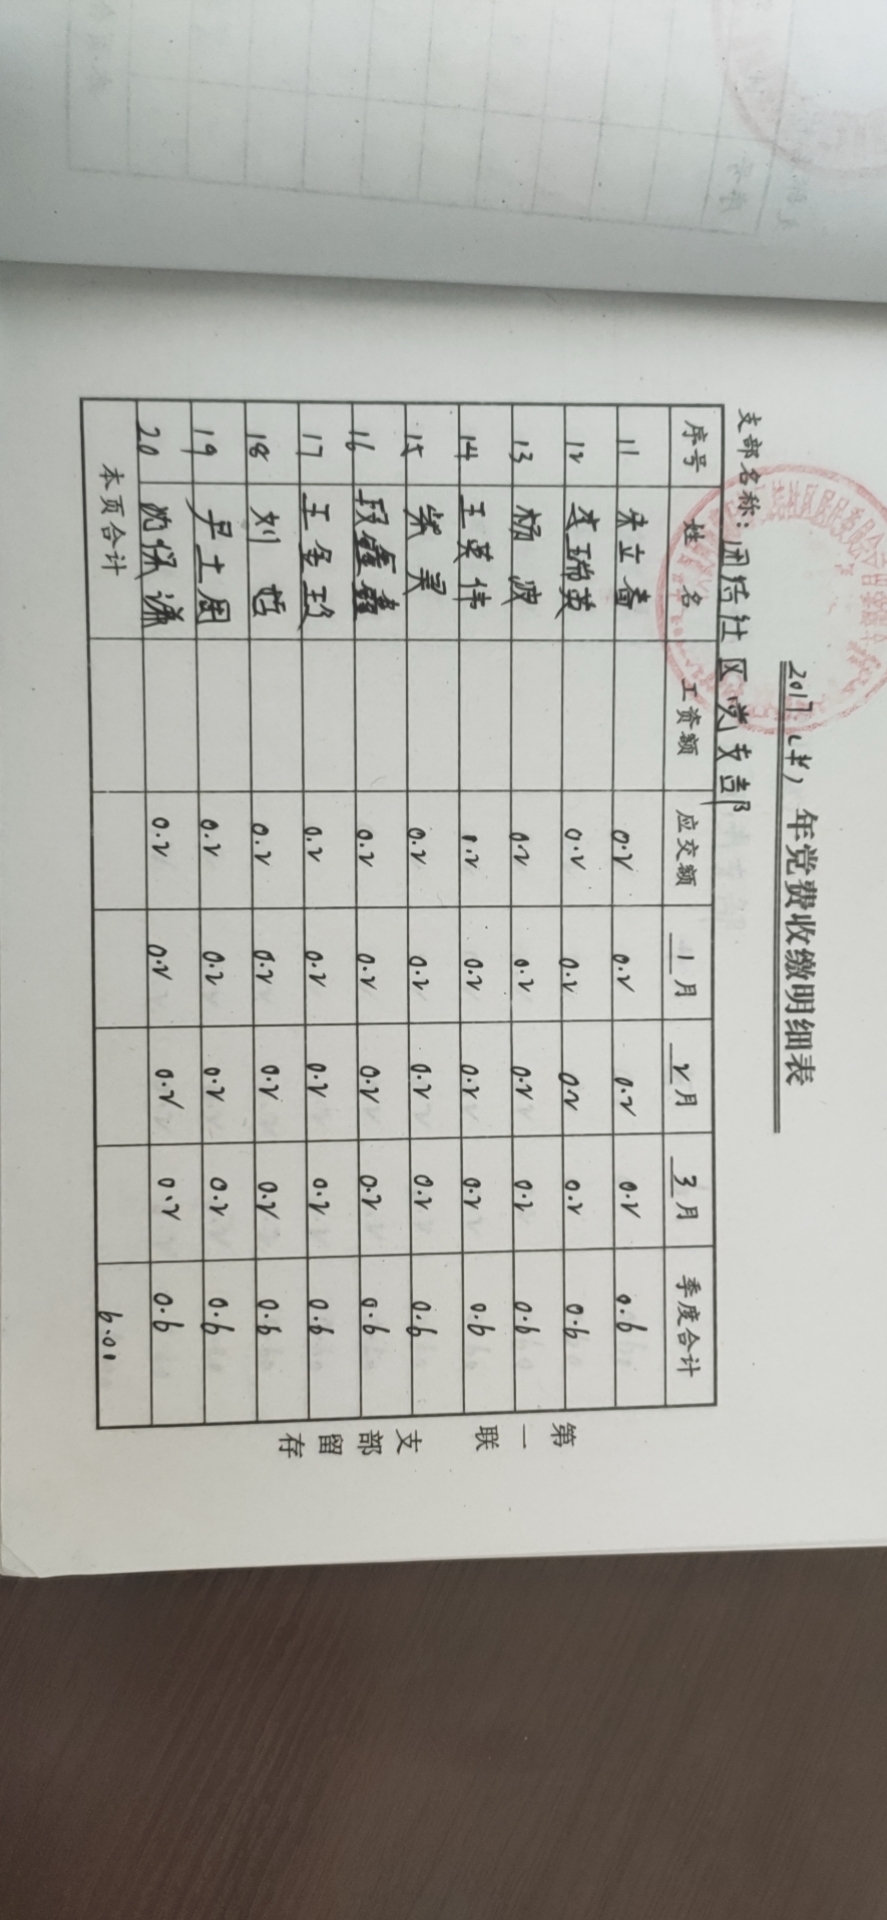 2017(半)年党费收缴明细表
支部名称：团结社区党支部
序号 姓名 工资额 应交额 1月 2月 3月 季度合计
11 宋立香 0.2 0.2 0.2 0.2 0.6
12 李瑞英 0.2 0.2 0.2 0.2 0.6
13 杨波 0.2 0.2 0.2 0.2 0.6
14 王英伟 0.2 0.2 0.2 0.2 0.6
15 0.2 0.2 0.2 0.2 0.6
16 段鑫鑫 0.2 0.2 0.2 0.2 0.6
17 王金玲 0.2 0.2 0.2 0.2 0.6
18 刘哲 0.2 0.2 0.2 0.2 0.6
19 尹士国 0.2 0.2 0.2 0.2 0.6
20 0.2 0.2 0.2 0.2 0.6
本页合计 6.01
第一联 支部留存